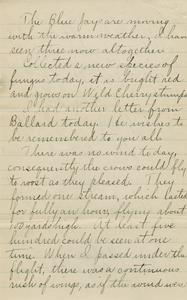 The Blue Jays are moving
with the warm weather, I have
seen three now altogether.
Collected a new species of
fungus today, it is bright red
and grows on Wild Cherry stumps.
I had another letter from
Ballard today. He wishes to
be remembered to you all.
There was no wind to day,
consequently the crows could fly
to roost as they pleased. They
formed one stream, which lasted
for fully an hour, flying about
100 yards high. At least five
hundred could be seen at one
time. When I passed under the
flight, there was a continuous
rush of wings, as if the wind were